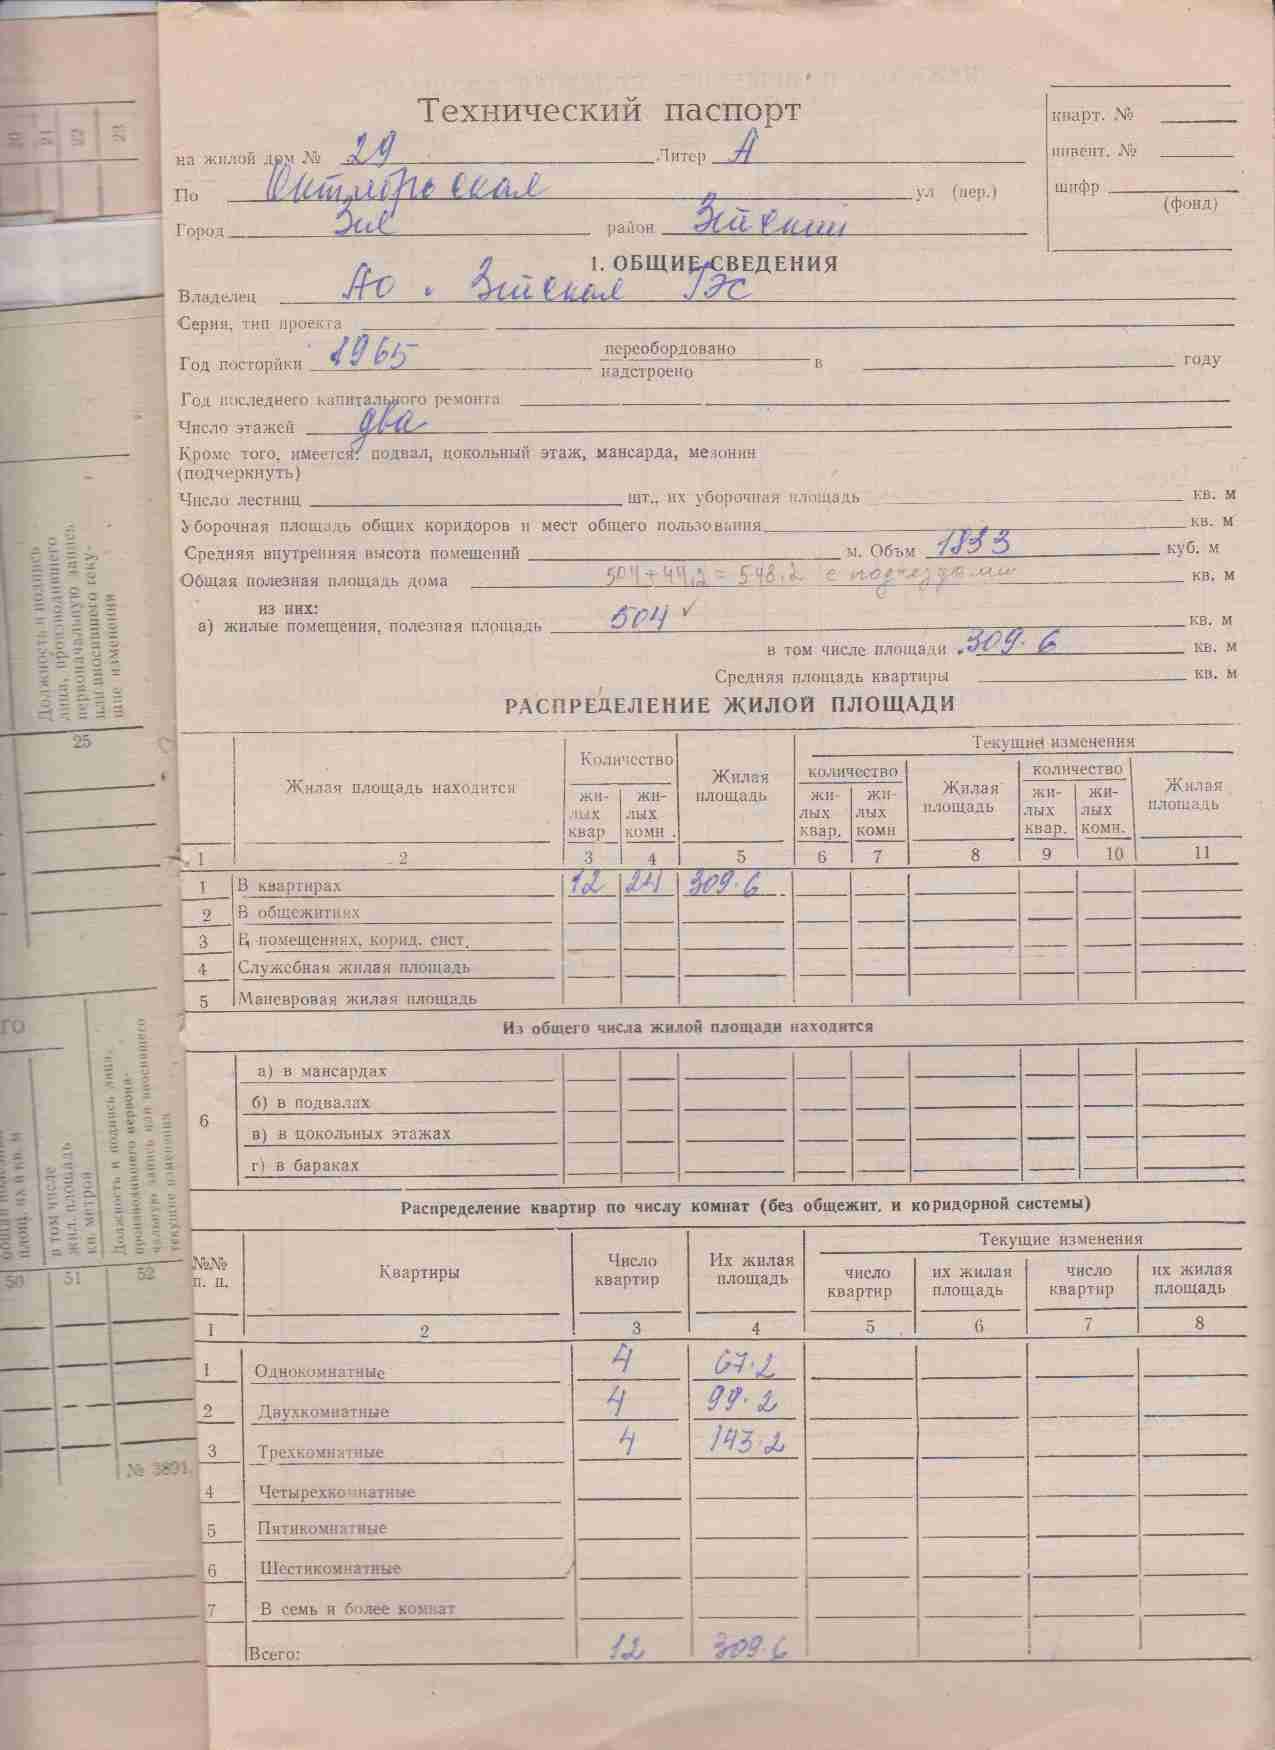 Технический паспорт
кварт. №
инвент. №
шифр
(фонд)
на жилой дом № 29 Литер А
По Октябрьская ул (пер.)
Город Зея район Зейский
1. ОБЩИЕ СВЕДЕНИЯ
Владелец АО Зейская ГЭС
Серия, тип проекта
Год посторйки 1965 переобордовано
надстроено
в году
Год последнего капитального ремонта
Число этажей два
Кроме того, имеется: подвал, цокольный этаж, мансарда, мезонин
(подчеркнуть)
Число лестниц шт., их уборочная площадь кв. м
Уборочная площадь общих коридоров и мест общего пользования кв. м
Средняя внутренняя высота помещений м. Объм 1833 куб. м
Общая полезная площадь дома 504+44.2=548.2 с подъездами кв. м
из них:
а) жилые помещения, полезная площадь 504 ✓ кв. м
в том числе площади 309.6 кв. м
Средняя площадь квартиры кв. м
РАСПРЕДЕЛЕНИЕ ЖИЛОЙ ПЛОЩАДИ
Жилая площадь находится
Количество
жи-
лых
квар
жи-
лых
комн.
Жилая
площадь
Текущие изменения
количество
жи-
лых
квар.
жи-
лых
комн
Жилая
площадь
количество
жи-
лых
квар.
жи-
лых
комн.
Жилая
площадь
1 2 3 4 5 6 7 8 9 10 11
1 В квартирах 12 24 309.6
2 В общежитиях
3 В помещениях, корид. сист.
4 Служебная жилая площадь
5 Маневровая жилая площадь
Из общего числа жилой площади находится
6
а) в мансардах
б) в подвалах
в) в цокольных этажах
г) в бараках
Распределение квартир по числу комнат (без общежит. и коридорной системы)
№№
п. п.
Квартиры
Число
квартир
Их жилая
площадь
Текущие изменения
число
квартир
их жилая
площадь
число
квартир
их жилая
площадь
I 2 3 4 5 6 7 8
1 Однокомнатные 4 67.2
2 Двухкомнатные 4 99.2
3 Трехкомнатные 4 143.2
4 Четырехкомнатные
5 Пятикомнатные
6 Шестикомнатные
7 В семь и более комнат
Всего: 12 309.6
20 21 22 23
Должность и подпись
лица, производившего
первоначальную запись
или вносившего теку-
щие изменения
25
площ. их в кв. м
в том числе
жил. площадь
кв. метров
Должность и подпись лица,
производившего первона-
чальную запись или вносившего
текущие изменения
50 51 52
№ 3891.